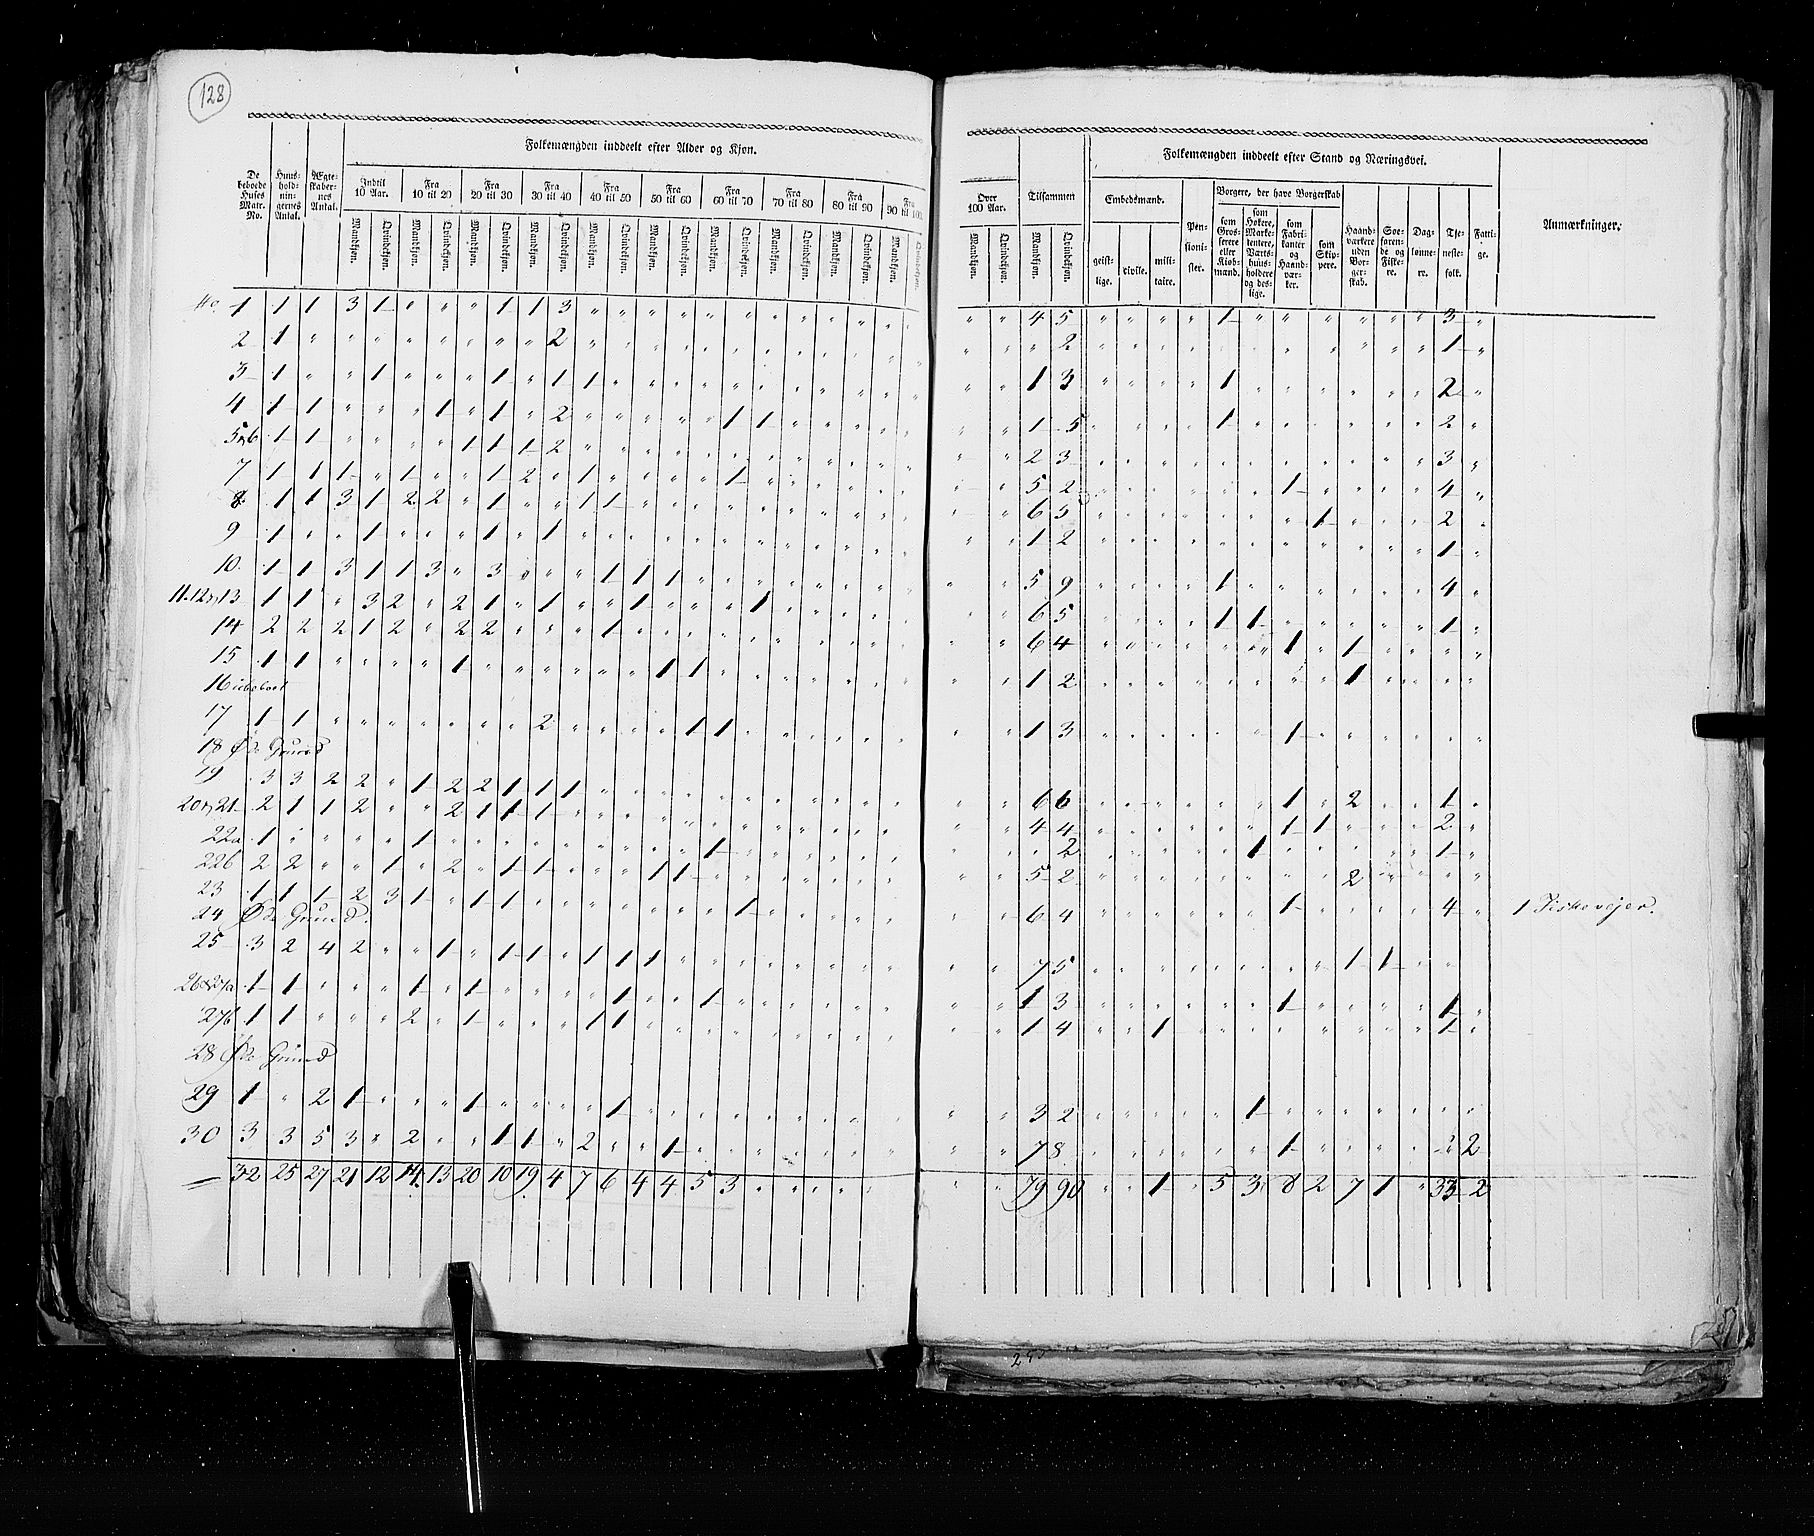 128
Folkemængden inddeelt efter Alder og Kjøn.
De beboede Huses Matr. No.
Huus-hold-nin-gernes Antal.
Ægte-skaber-nes Antal.
Indtil 10 Aar.
Fra 10 til 20
Fra 20 til 30
Fra 30 til 40
Fra 40 til 50
Fra 50 til 60
Fra 60 til 70
Fra 70 til 80
Fra 80 til 90
Fra 90 til 100.
Mandkjøn. Qvindekjøn. Mandkjøn. Qvindekjøn. Mandkjøn. Qvindekjøn. Mandkjøn. Qvindekjøn. Mandkjøn. Qvindekjøn. Mandkjøn. Qvindekjøn. Mandkjøn. Qvindekjøn. Mandkjøn. Qvindekjøn. Mandkjøn. Qvindekjøn. Mandkjøn. Qvindekjøn.
1 1 1 3 1 " " " 1 1 3
2 1 " " " " " " " " 2
3 1 " " 1 " " " 1 " 1 1
4 1 1 " " " 1 " 1 " 2 " " " " " 1 1
5 & 6 1 1 " " " " 1 1 1 2
7 1 1 1 " 1 " " 1 2 " 1 " " " " 1
8 1 1 3 1 2 2 " 1 " " 1 1
9 1 " " 1 " " " 1 " 1
10 1 1 3 1 1 3 " 3 " " " 1 1 1
11. 12 & 13 1 1 " 3 2 " 2 1 " 1 " " 1 " " " 1
14 2 2 2 1 2 " 2 2 " " " 1
15 1 1 " " " " 1 " " " " " " 1 1
16 ubeboet
17 1 1 " " " " " " " 2 " " " " 1 1
18 Øde Grund
19 3 3 2 2 " 1 2 2 1 1 1
20 & 21 2 1 1 2 " " 2 1 1 1
22a 1 " " " " 1 " " " " " " " " " 1
22b 2 2 " " 1 " 2 " 1 1 " " " 1 1
23 1 1 1 2 3 1 " 1 1 " " " " " " " 1
24 Øde Grund.
25 3 2 4 2 " " 1 " 1 1 " 1 1 1
26 & 27a 1 1 " " " 1 " 1 " " " " 1 " " 1
27b 1 1 " " " 2 " 1 " " " 1 1
28 Øde Grund
29 1 " 2 1 " " " 1 " " " " 1
30 3 3 5 3 " 2 " " 1 1 " 2 " " 1
32 25 27 21 12 14 13 20 10 19 4 7 6 4 4 5 3
Folkemængden inddeelt efter Stand og Næringsvei.
Over 100 Aar.
Tilsammen
Embedsmænd.
Pen-sioni-ster.
Borgere, der have Borgerskab
Haand-værkere uden Bor-ger-skab.
Søe-faren-de og Fiske-re.
Dag-lønne-re.
Tje-neste-folk.
Fatti-ge.
Anmærkninger.
Mandkjøn. Qvindekjøn. Mandkjøn. Qvindekjøn.
geist-lige. civile. mili-taire.
som Gros-serere eller Kiøb-mænd.
som Høkere, Marke-tentere, Værts-huus-holdere og des-lige.
som Fabri-kanter og Haand-vær-ker.
som Skip-pere.
" " 4 5 " " " " 1 " " " " " " 3 "
" " " 2 " " " " " " " " " " " 1 "
" " 1 3 " " " " 1 " " " " " " 2 "
" " 1 5 " " " " 1 " " " " " " 2 "
" " 2 3 " " " " " " " " " " " 3 "
" " 5 2 " " " " " " 1 " " " " 4 "
" " 6 5 " " " " " " " 1 " " " 2 "
" " 1 2 " " " " " " " " " " " 1 "
" " 5 9 " " " " 1 " " " " " " 4 "
" " 6 5 " " " " 1 1 " " " " " 1 "
" " 6 4 " " " " " " 1 " 1 " " " "
" " 1 2 " " " " " " " " 1 " " " "
" " 1 3 " " " " " " 1 " " " " " "
" " 6 6 " " " " " " 1 " 2 " " 1 "
" " 4 4 " " " " " " 1 1 " " " 2 "
" " " 2 " " " " " 1 " " " " " 1 "
" " 5 2 " " " " " " " " 2 " " " "
" " 6 4 " " " " " " 1 " " " " 4 " 1
" " 7 5 " " " " " " " " 1 1 " " "
" " 1 3 " " " " " " 1 " " " " 1 "
" " 1 4 " " 1 " " " " " " " " 1 "
" " 3 2 " " " " " 1 " " " " " " "
" " 7 8 " " " " " " 1 " " " " " 2
" " 79 90 " " 1 " 5 3 8 2 7 1 " 33 2